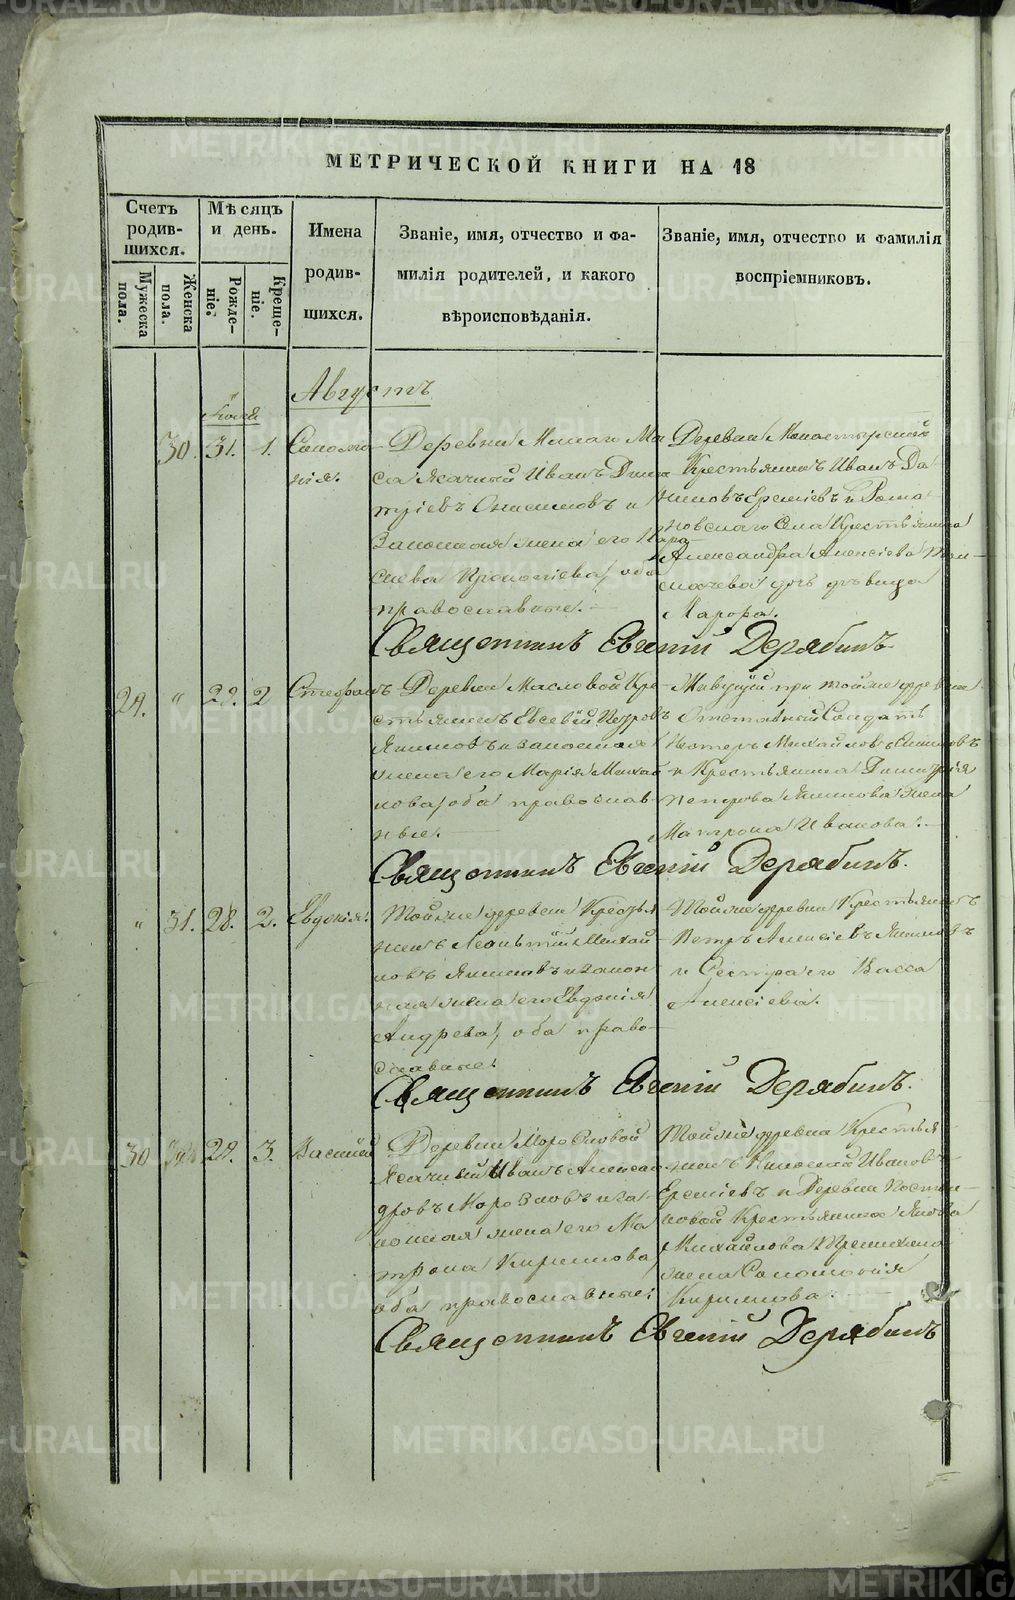 МЕТРИЧЕСКОЙ КНИГИ НА 18
Счетъ родив-шихся.
Мужеска пола.
Женска пола.
Мѣсяцъ и день.
Рожде-ніе.
Креще-ніе.
Имена родив-шихся.
Званіе, имя, отчество и фа-
милія родителей, и какого
вѣроисповѣданія.
Званіе, имя, отчество и фамилія
воспріемниковъ.
Августъ
Іюля
30. 31. 1.
Соломо-
нія.
Деревни Малаго
Ясачный Иванъ Дими
тріевъ Онисимовъ и
Законная жена его Пара-
скева Прокопіева, оба
православные.
Деревни Монастырской
Крестьянинъ Иванъ Да
ниловъ Еремѣевъ и Рома-
новскаго Села Крестьянина
Александра Алексіева
дочь дѣвица
Марфа.
Священникъ Евгеній Дерябинъ
29. " 29. 2
Стефанъ
Деревни Масловой Кре-
стьянинъ Евсевій Петровъ
Якимовъ и законная
жена его Марія Михай
лова, оба православ-
ные.
Живущій при той же деревни
Отставный Солдатъ
Петеръ Михайловъ
и Крестьянина Димитрія
Петрова Якимова жена
Матрона Иванова.
Священникъ Евгеній Дерябинъ.
" 31. 28. 2.
Евдокія.
Той же деревни Крестья
нинъ Леонтій Михай
ловъ Якимовъ и закон
ная жена его Евдокія
Андреева, оба право-
славные.
Той же деревни Крестьянинъ
Петръ Алексіевъ Якимовъ
и Сестра его Васса
Алексіева.
Священникъ Евгеній Дерябинъ.
30 29. 3.
Василій
Деревни Морозковой
Ясачный Иванъ Алексан
дровъ Морозковъ и за-
конная жена его Ма
трона Кирилова,
оба православные.
Той же деревни Крестья
нинъ Николай Ивановъ
Еремѣевъ и Деревни
Крестьянина Якова
Михайлова
жена Соломонія
Кирилова.
Священникъ Евгеній Дерябинъ
METRIKI.GASO-URAL.RU